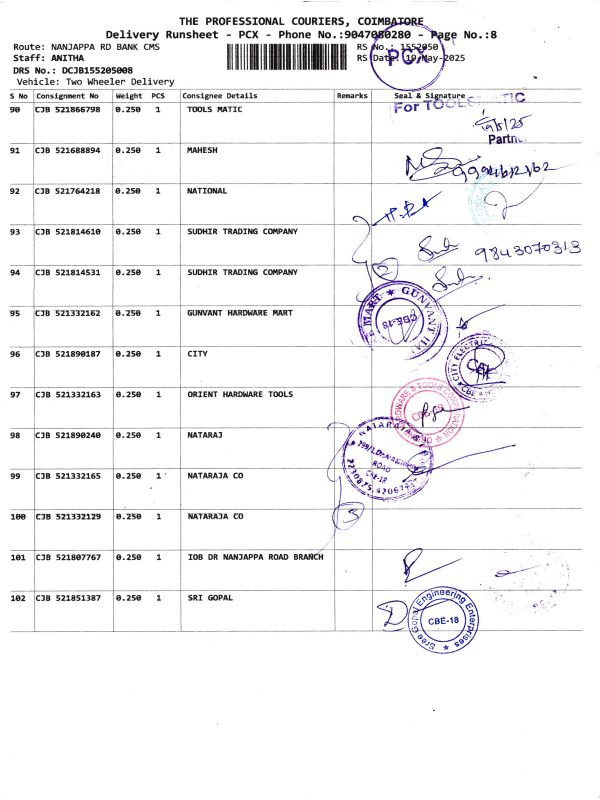 THE PROFESSIONAL COURIERS, COIMBATORE
Delivery Runsheet - PCX - Phone No.:9047080280 - Page No.:8
Route: NANJAPPA RD BANK CMS
RS No.: 1552050
Staff: ANITHA
RS Date: 19-May-2025
PCX
DRS No.: DCJB155205008
Vehicle: Two Wheeler Delivery
S No Consignment No Weight PCS Consignee Details Remarks Seal & Signature
90 CJB 521866798 0.250 1 TOOLS MATIC
For TOOLS MATIC
19/5/25
91 CJB 521688894 0.250 1 MAHESH
92 CJB 521764218 0.250 1 NATIONAL
93 CJB 521814610 0.250 1 SUDHIR TRADING COMPANY
9843070313
94 CJB 521814531 0.250 1 SUDHIR TRADING COMPANY
2
95 CJB 521332162 0.250 1 GUNVANT HARDWARE MART
MART ★ GUNVANT HA
CBE-18
96 CJB 521890187 0.250 1 CITY
CITY ELECTRIC
CBE
97 CJB 521332163 0.250 1 ORIENT HARDWARE TOOLS
CBE-18
98 CJB 521890240 0.250 1 NATARAJ
ROAD
CBE-18
99 CJB 521332165 0.250 1 NATARAJA CO
100 CJB 521332129 0.250 1 NATARAJA CO
3
101 CJB 521807767 0.250 1 IOB DR NANJAPPA ROAD BRANCH
102 CJB 521851387 0.250 1 SRI GOPAL
Sree Gopal Engineering Enterprises
CBE-18